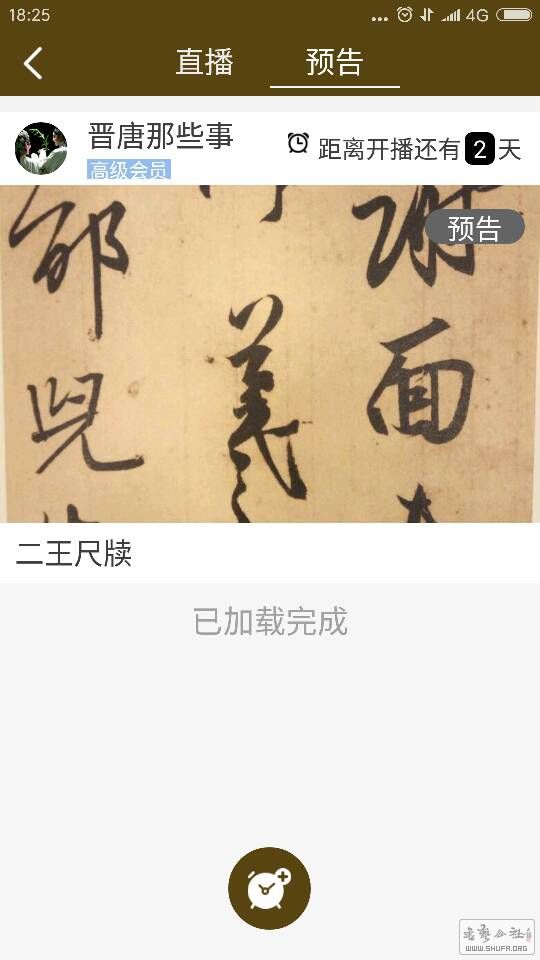 18:25
4G
直播 预告
晋唐那些事
高级会员
距离开播还有2天
预告
谢
面
羲
邵
兕
二王尺牍
已加载完成
书艺公社
WWW.SHUFA.ORG